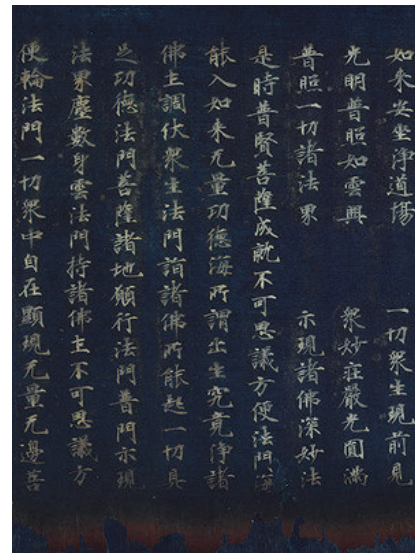 如來安坐淨道場　一切衆生現前見
光明普照如雲興　衆妙莊嚴光圓滿
普照一切諸法界　示現諸佛深妙法
是時普賢菩薩成就不可思議方便法門海
能入如來无量功德海所謂出生究竟淨諸
佛土調伏衆生法門詣諸佛所能起一切具
足功德法門菩薩諸地願行法門普門示現
法界塵數身雲法門持諸佛土不可思議方
便輪法門一切衆中自在顯現无量无邊菩